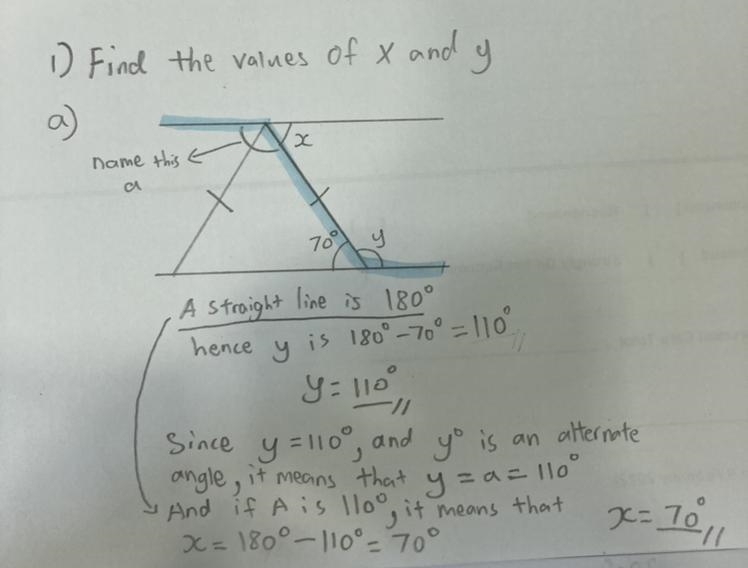 1) Find the values of x and y
a)
name this
a
x
70°
y
A straight line is 180°
hence y is 180° - 70° = 110°
y = 110°
Since y = 110°, and y° is an alternate
angle, it means that y = a = 110°
And if A is 110°, it means that
x = 180° - 110° = 70°
x = 70°